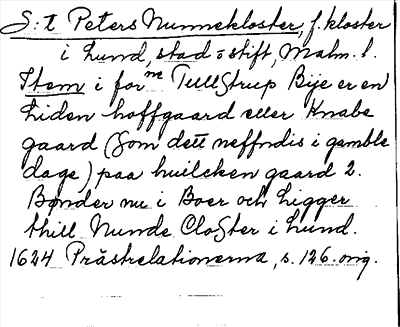 S:t Peters Nunnekloster, f. kloster
i Lund, stad o stift, Malm. l.
Item i for^me TullStrup Bÿe er en
Liden hoffgaard eller Knabe
gaard (Som dett neffndis i gamble
dage) paa huilcken gaard 2.
Bønder nu i Boer och Ligger
thill Nunde CloSter i Lund.
1624 Prästrelationerna, s. 126. orig.